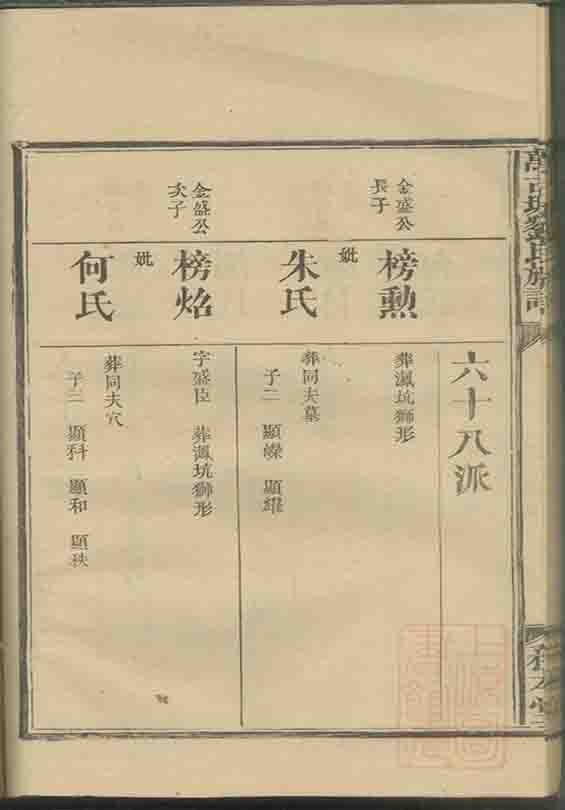 六十八派
金盛公
長子
榜勲
葬㵢坑獅形
妣
朱氏
葬同夫墓
子二 顯爍 顯燿
金盛公
次子
榜焰
字盛臣 葬㵢坑獅形
妣
何氏
葬同夫穴
子三 顯科 顯和 顯秩